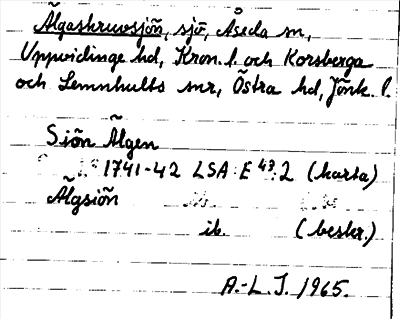 Älgaskruvsjön, sjö, Åseda sn,
Uppvidinge hd, Kron. l. och Korsberga
och Lemnhults snr, Östra hd, Jönk. l.
Siön Älgen
1741-42 LSA E 43:2 (karta)
Älgsiön
ib. (beskr.)
A.-L. J. 1965.